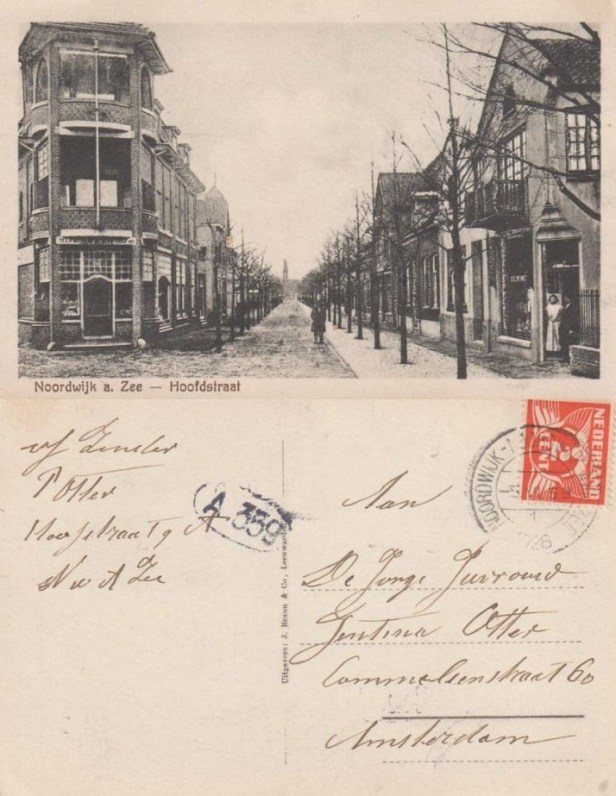 Noordwijk a. Zee — Hoofdstraat
afzender
P Otter
Hoofdstraat 9 A
N w A Zee
A 359
Uitgevers: J. Braam & Co., Leeuwarden
NEDERLAND
2
CENT
NOORDWIJK-A
ZEE
Aan
De Jonge Juvrouw
Gentina Otter
Commelsenstraat 60
Amsterdam